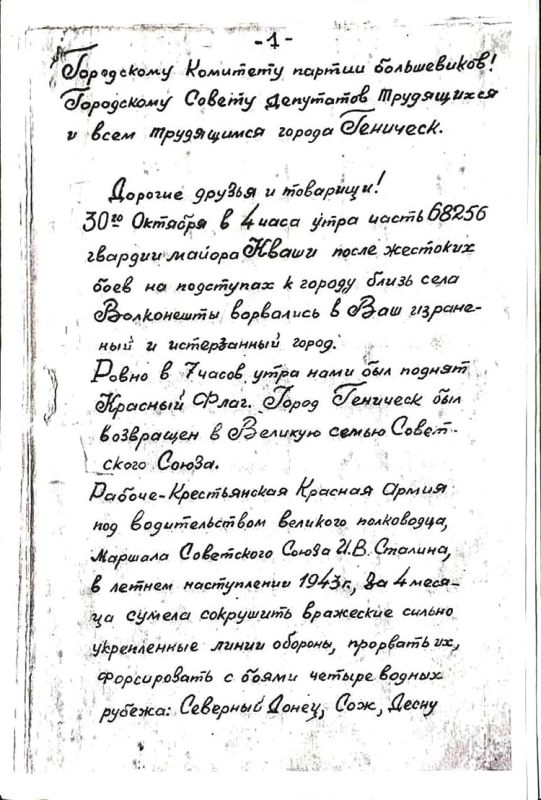 -1-
Городскому Комитету партии большевиков!
Городскому Совету Депутатов Трудящихся
и всем трудящимся города Геническ.
Дорогие друзья и товарищи!
30го Октября в 4 часа утра часть 68256
гвардии майора Кваши после жестоких
боев на подступах к городу близь села
Волконешты ворвались в Ваш изране-
ный и истерзанный город.
Ровно в 7 часов утра нами был поднят
Красный Флаг. Город Геническ был
возвращен в Великую семью Совет-
ского Союза.
Рабоче-Крестьянская Красная Армия
под водительством великого полководца,
Маршала Советского Союза И.В. Сталина,
в летнем наступлении 1943г, За 4 меся-
ца сумела сокрушить вражеские сильно
укрепленные линии обороны, прорвать их,
Форсировать с боями четыре водных
рубежа: Северный Донец, Сож, Десну